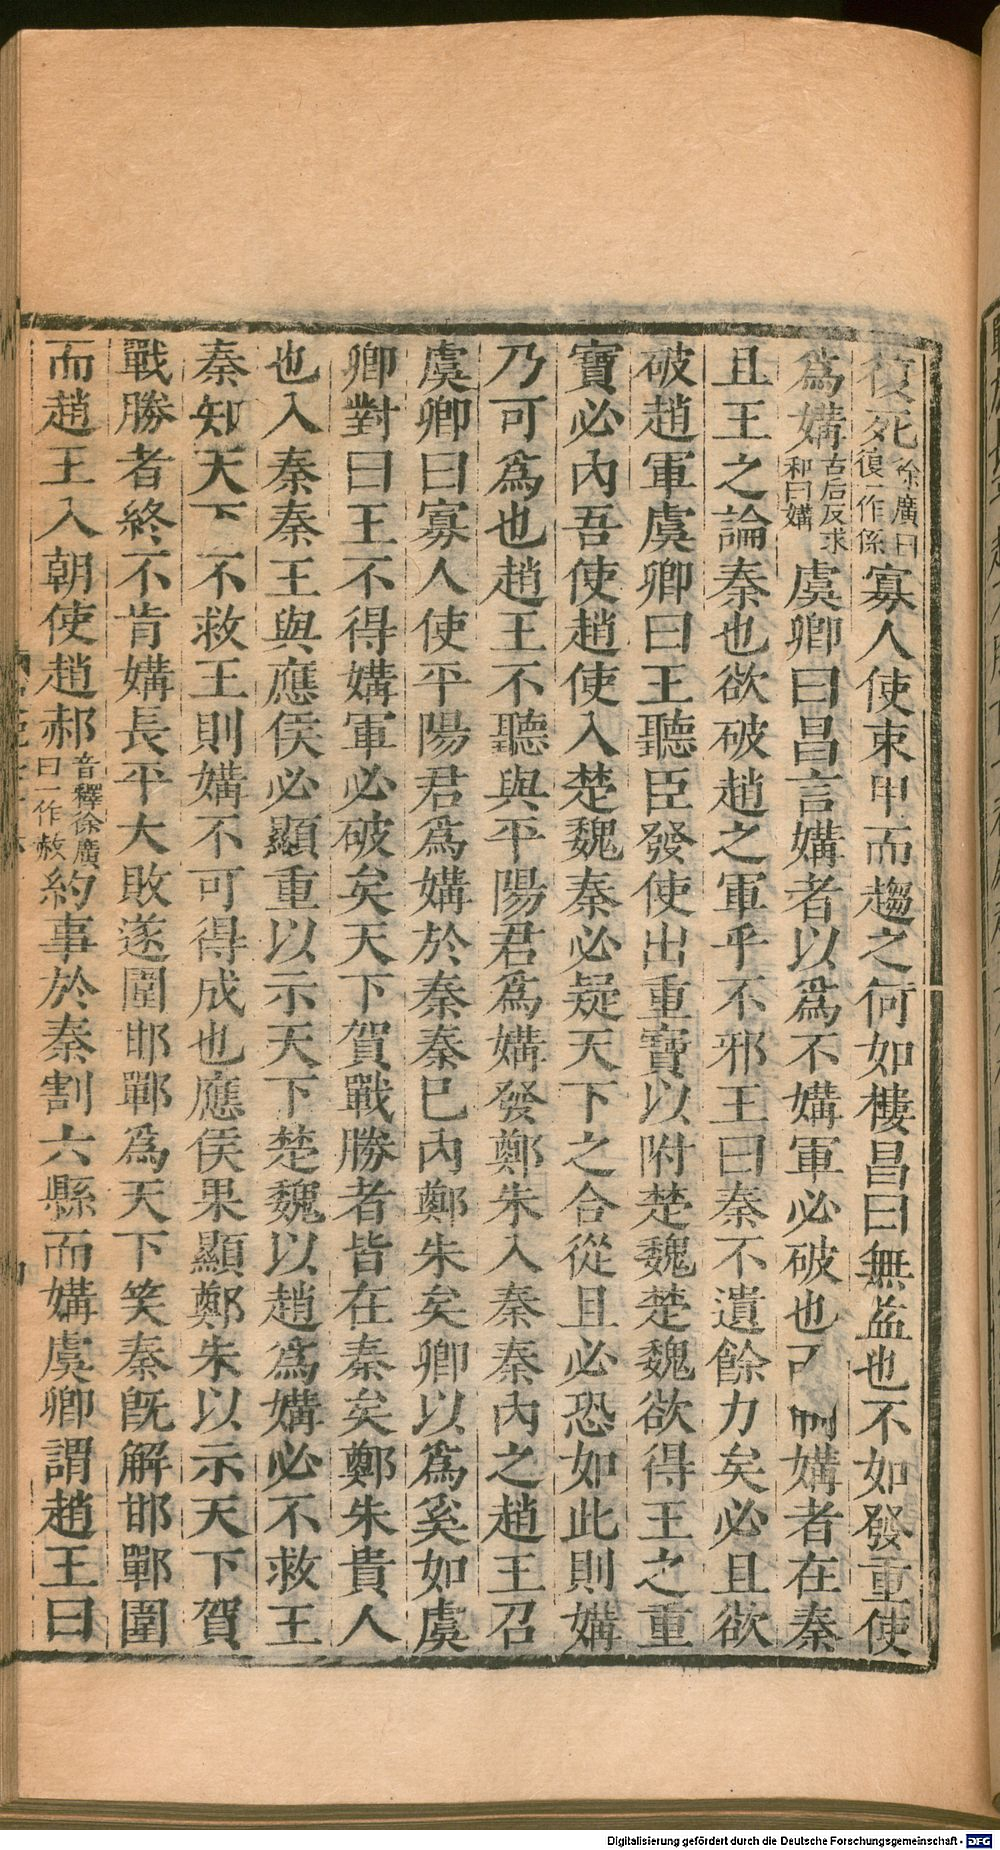 復死徐廣曰復一作係寡人使束甲而趨之何如樓昌曰無益也不如發重使
爲媾古后反求和曰媾虞卿曰昌言媾者以爲不媾軍必破也而制媾者在秦
且王之論秦也欲破趙之軍乎不邪王曰秦不遺餘力矣必且欲
破趙軍虞卿曰王聽臣發使出重寶以附楚魏楚魏欲得王之重
寶必內吾使趙使入楚魏秦必疑天下之合從且必恐如此則媾
乃可爲也趙王不聽與平陽君爲媾發鄭朱入秦秦內之趙王召
虞卿曰寡人使平陽君爲媾於秦秦已內鄭朱矣卿以爲奚如虞
卿對曰王不得媾軍必破矣天下賀戰勝者皆在秦矣鄭朱貴人
也入秦秦王與應侯必顯重以示天下楚魏以趙爲媾必不救王
秦知天下不救王則媾不可得成也應侯果顯鄭朱以示天下賀
戰勝者終不肯媾長平大敗遂圍邯鄲爲天下笑秦旣解邯鄲圍
而趙王入朝使趙郝音釋徐廣曰一作赦約事於秦割六縣而媾虞卿謂趙王曰
Digitalisierung gefördert durch die Deutsche Forschungsgemeinschaft - DFG